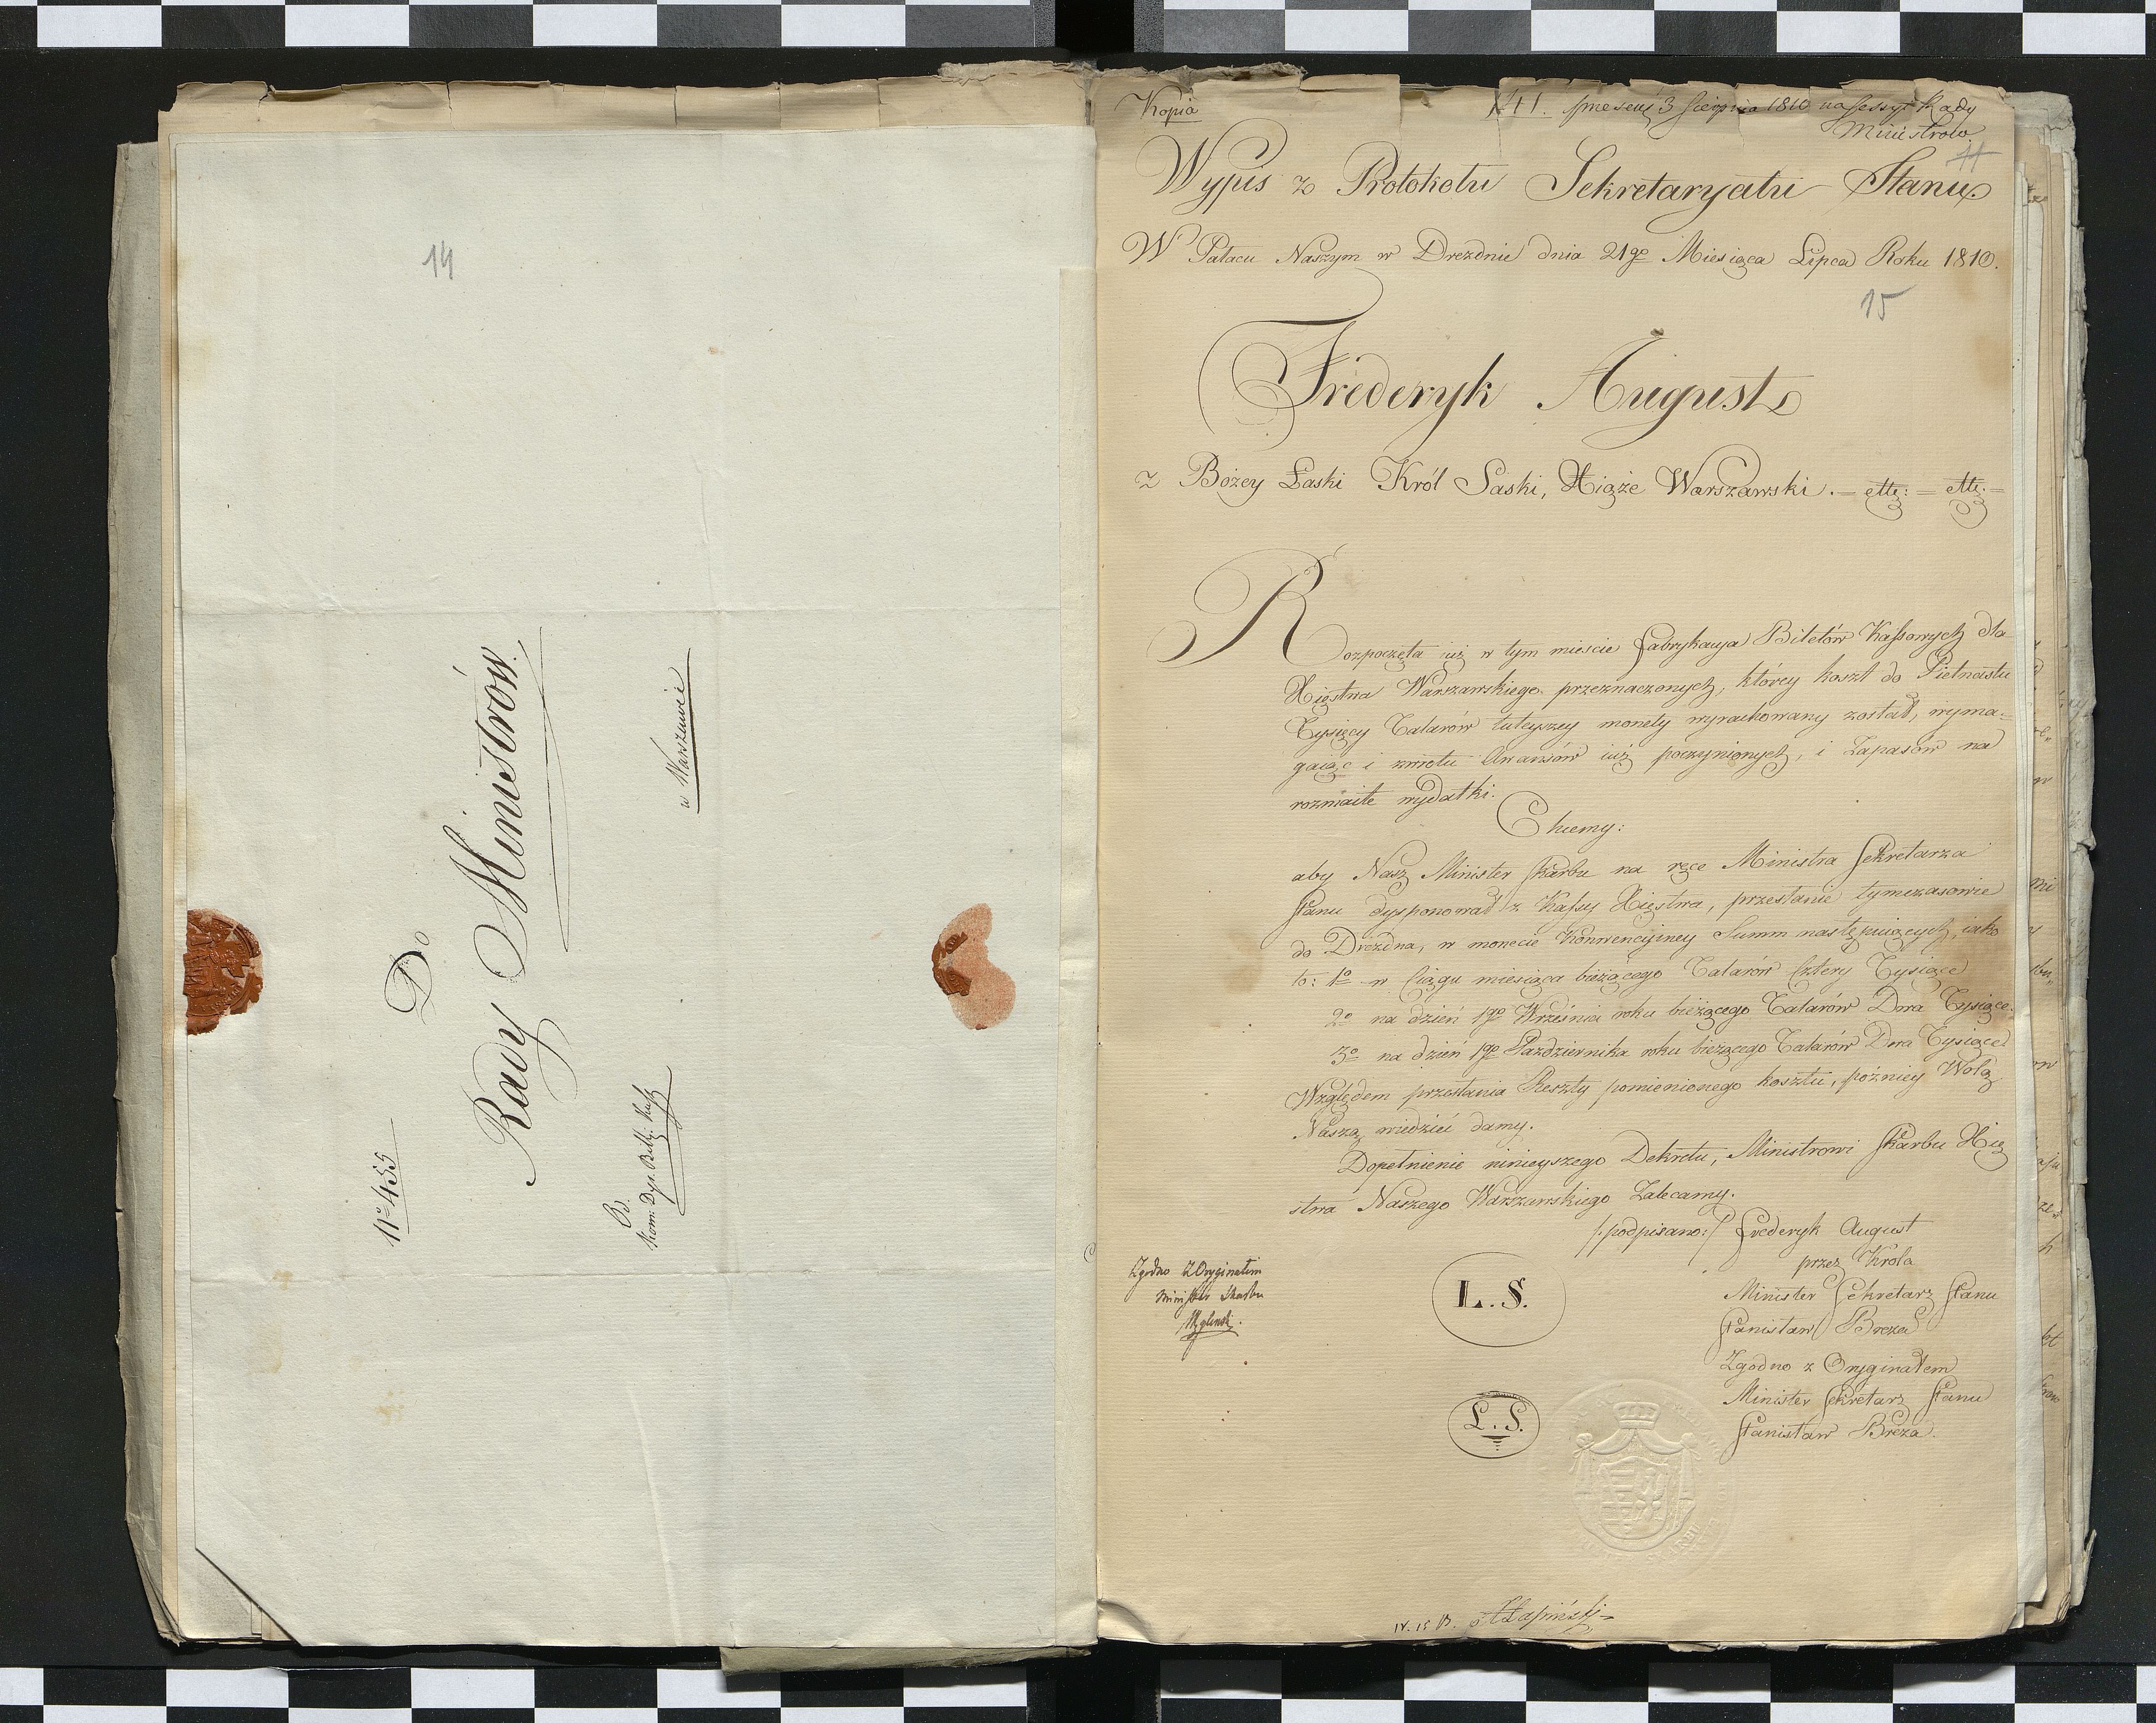 14
N° 455
Do
Rady Ministrów.
w Warszawie
Od
Kom: Dyr. Bilt: Kass
Kopia
141. praesent 3 Sierpnia 1810 na Sessyi Rady
Ministrów
11
Wypis z Protokołu Sekretaryatu Stanu.
W Pałacu Naszym w Dreźdnie dnia 21go Miesiąca Lipca Roku 1810.
15
Frederyk August
z Bożey Łaski Król Saski, Xiąże Warszawski. = ettc: = ettc: =
Rozpoczęta iuż w tym mieście Fabrykacya Biletów Kassowych dla
Xięstwa Warszawskiego przeznaczonych, którey koszt do Pietnastu
Tysięcy Talarów tuteyszey monety wyrachowany został, wyma=
gaiąc i zwrotu Awansów iuż poczynionych, i Zapasów na
rozmaite wydatki.
Chcemy:
aby Nasz Minister Skarbu na ręce Ministra Sekretarza
Stanu dysponował z Kassy Xięstwa, przesłanie tymczasowie
do Drezdna, w monecie Konwencyiney Summ następuiących, iako
to: 1° w Ciągu miesiąca bieżącego Talarów Cztery Tysiące
2° na dzień 1go Września roku bieżącego Talarów Dwa Tysiące.
3° na dzień 1go Października roku bieżącego Talarów Dwa Tysiące
Względem przesłania Reszty pomienionego kosztu, poźniey Wolą
Naszą wiedzieć damy.
Dopełnienie ninieyszego Dekretu, Ministrowi Skarbu Xię
stwa Naszego Warszawskiego Zalecamy.
/:podpisano:/ Frederyk August
przez Króla
Minister Sekretarz Stanu
Stanisław Breza
Zgodno z Oryginałem
Minister Sekretarz Stanu
Stanisław Breza.
Zgodno Z Oryginałem
Minister Skarbu
Węgleński.
L. S.
L. S.